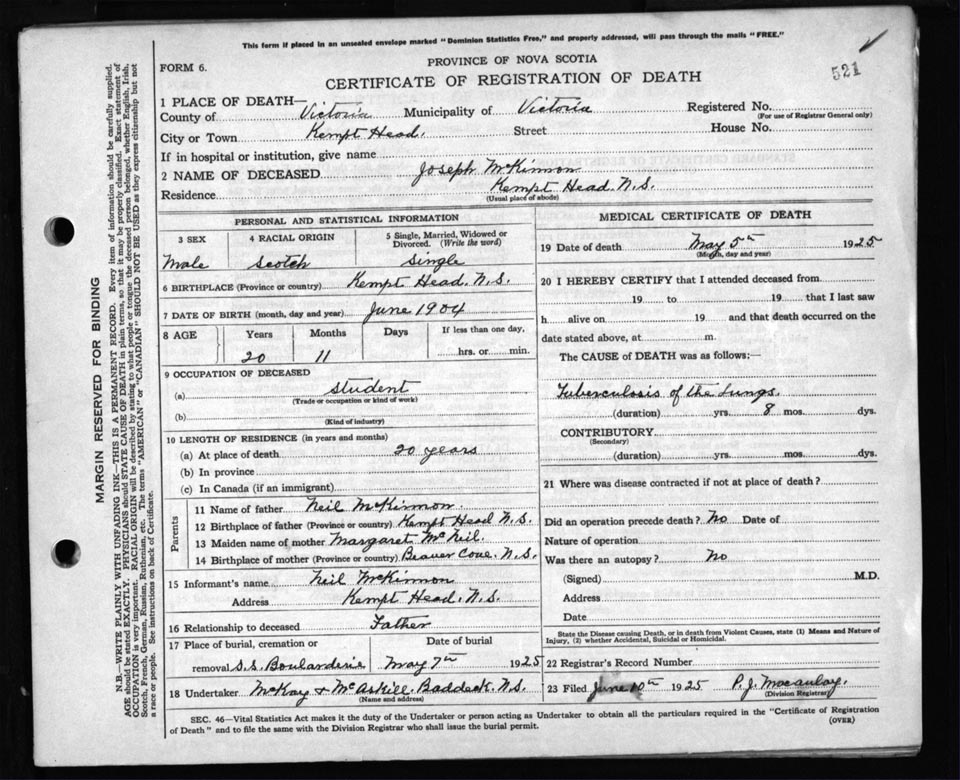 This form if placed in an unsealed envelope marked "Dominion Statistics Free," and properly addressed, will pass through the mails "FREE."
521
FORM 6.
PROVINCE OF NOVA SCOTIA
CERTIFICATE OF REGISTRATION OF DEATH
1 PLACE OF DEATH—
County of Victoria Municipality of Victoria Registered No.
(For use of Registrar General only)
City or Town Kempt Head. Street House No.
If in hospital or institution, give name
2 NAME OF DECEASED Joseph McKinnon
Residence Kempt Head. N.S.
(Usual place of abode)
PERSONAL AND STATISTICAL INFORMATION
3 SEX 4 RACIAL ORIGIN 5 Single, Married, Widowed or Divorced. (Write the word)
Male Scotch Single
6 BIRTHPLACE (Province or country) Kempt Head. N.S.
7 DATE OF BIRTH (month, day and year) June 1904
8 AGE Years Months Days If less than one day,
20 11 hrs. or min.
9 OCCUPATION OF DECEASED
(a) Student
(Trade or occupation or kind of work)
(b)
(Kind of industry)
10 LENGTH OF RESIDENCE (in years and months)
(a) At place of death 20 years
(b) In province
(c) In Canada (if an immigrant)
Parents
11 Name of father Neil McKinnon
12 Birthplace of father (Province or country) Kempt Head N.S.
13 Maiden name of mother Margaret McNeil.
14 Birthplace of mother (Province or country) Beaver Cove. N.S.
15 Informant's name Neil McKinnon
Address Kempt Head. N.S.
16 Relationship to deceased Father
17 Place of burial, cremation or Date of burial
removal S.S. Boularderie May 7th 1925
18 Undertaker McKay & McAskill. Baddeck. N.S.
(Name and address)
MEDICAL CERTIFICATE OF DEATH
19 Date of death May 5th 1925
(Month, day and year)
20 I HEREBY CERTIFY that I attended deceased from
19 to 19 that I last saw
h alive on 19 and that death occurred on the
date stated above, at m.
The CAUSE of DEATH was as follows:—
Tuberculosis of the Lungs.
(duration) yrs. 8 mos. dys.
CONTRIBUTORY
(Secondary)
(duration) yrs. mos. dys.
21 Where was disease contracted if not at place of death?
Did an operation precede death? No Date of
Nature of operation
Was there an autopsy? No
(Signed) M.D.
Address
Date
State the Disease causing Death, or in death from Violent Causes, state (1) Means and Nature of
Injury, (2) whether Accidental, Suicidal or Homicidal.
22 Registrar's Record Number
23 Filed June 10th 1925 P. J. Macaulay.
(Division Registrar)
SEC. 46—Vital Statistics Act makes it the duty of the Undertaker or person acting as Undertaker to obtain all the particulars required in the "Certificate of Registration
of Death" and to file the same with the Division Registrar who shall issue the burial permit. (OVER)
MARGIN RESERVED FOR BINDING
N.B.—WRITE PLAINLY WITH UNFADING INK—THIS IS A PERMANENT RECORD. Every item of information should be carefully supplied.
AGE should be stated EXACTLY. PHYSICIANS should STATE CAUSE OF DEATH in plain terms, so that it may be properly classified. Exact statement of
OCCUPATION is very important. RACIAL ORIGIN will be described by stating to what people or tongue the deceased person belonged, whether English, Irish,
Scotch, French, German, Russian, Ruthenian, etc. The terms "AMERICAN" or "CANADIAN" SHOULD NOT BE USED as they express citizenship but not
a race or people. See instructions on back of Certificate.